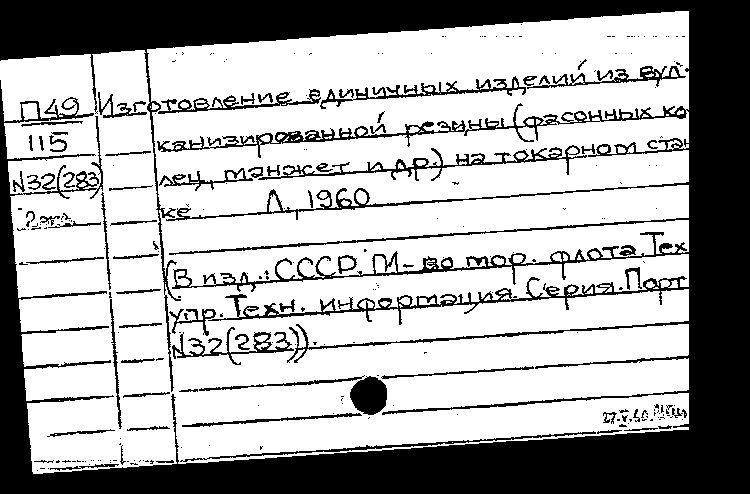 П49
115
N32(283)
2 экз.
Изготовление единичных изделий из вул-
канизированной резины (фасонных ко
лец, манжет и др.) на токарном стан
ке. Л., 1960
(В изд.: СССР. М-во мор. флота. Тех
упр. Техн. информация. Серия. Порт
N32(283)).
27.V.60